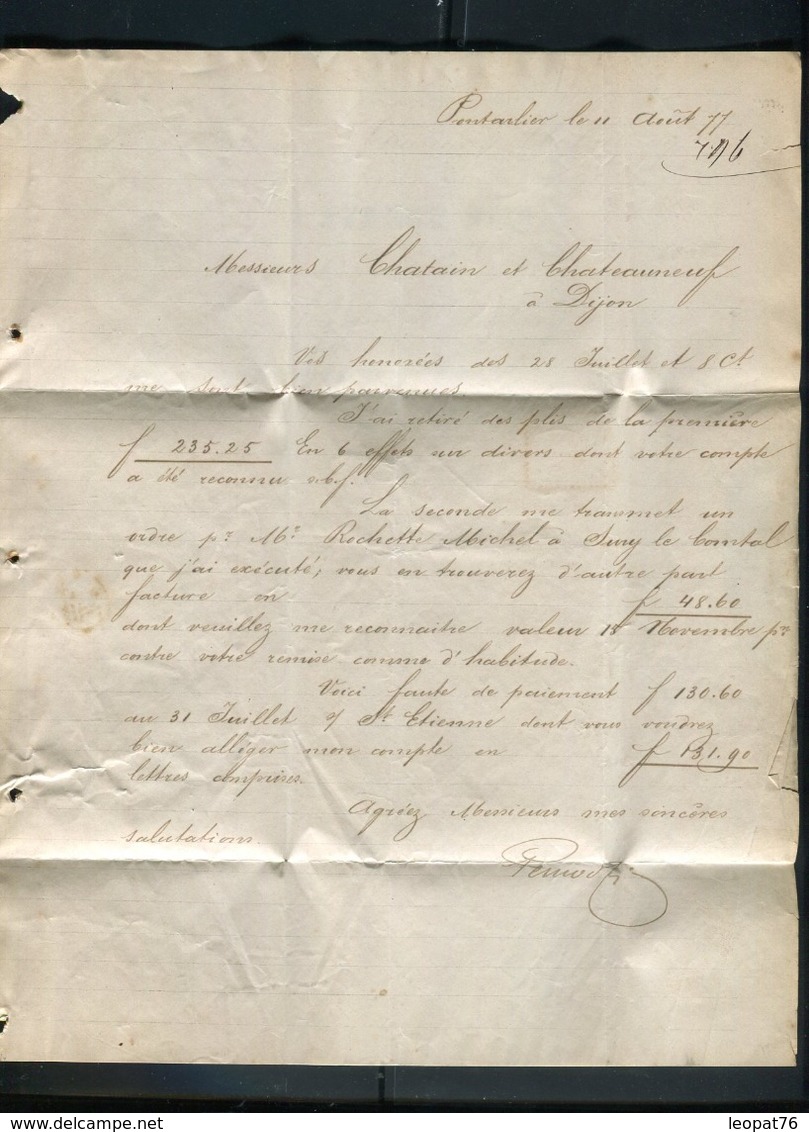 Pontarlier le 11 Août 77
Messieurs Chatain et Chateauneuf
à Dijon
Vos honorées des 28 Juillet et 8 Ct
me sont bien parvenues.
J'ai retiré des plis de la première
f 235.25 En 6 effets sur divers dont votre compte
a été reconnu s.b.f.
La seconde me transmet un
ordre pr Mr Rochette Michel à Sury le Comtal
que j'ai exécuté; vous en trouverez d'autre part
facture en f 48.60
dont veuillez me reconnaitre valeur 15 Novembre pr
contre votre remise comme d'habitude.
Voici faute de paiement f 130.60
au 31 Juillet s/ St Etienne dont vous voudrez
bien alléger mon compte en f 131.90
lettres comprises.
Agréez Messieurs mes sincères
salutations.
leopat76